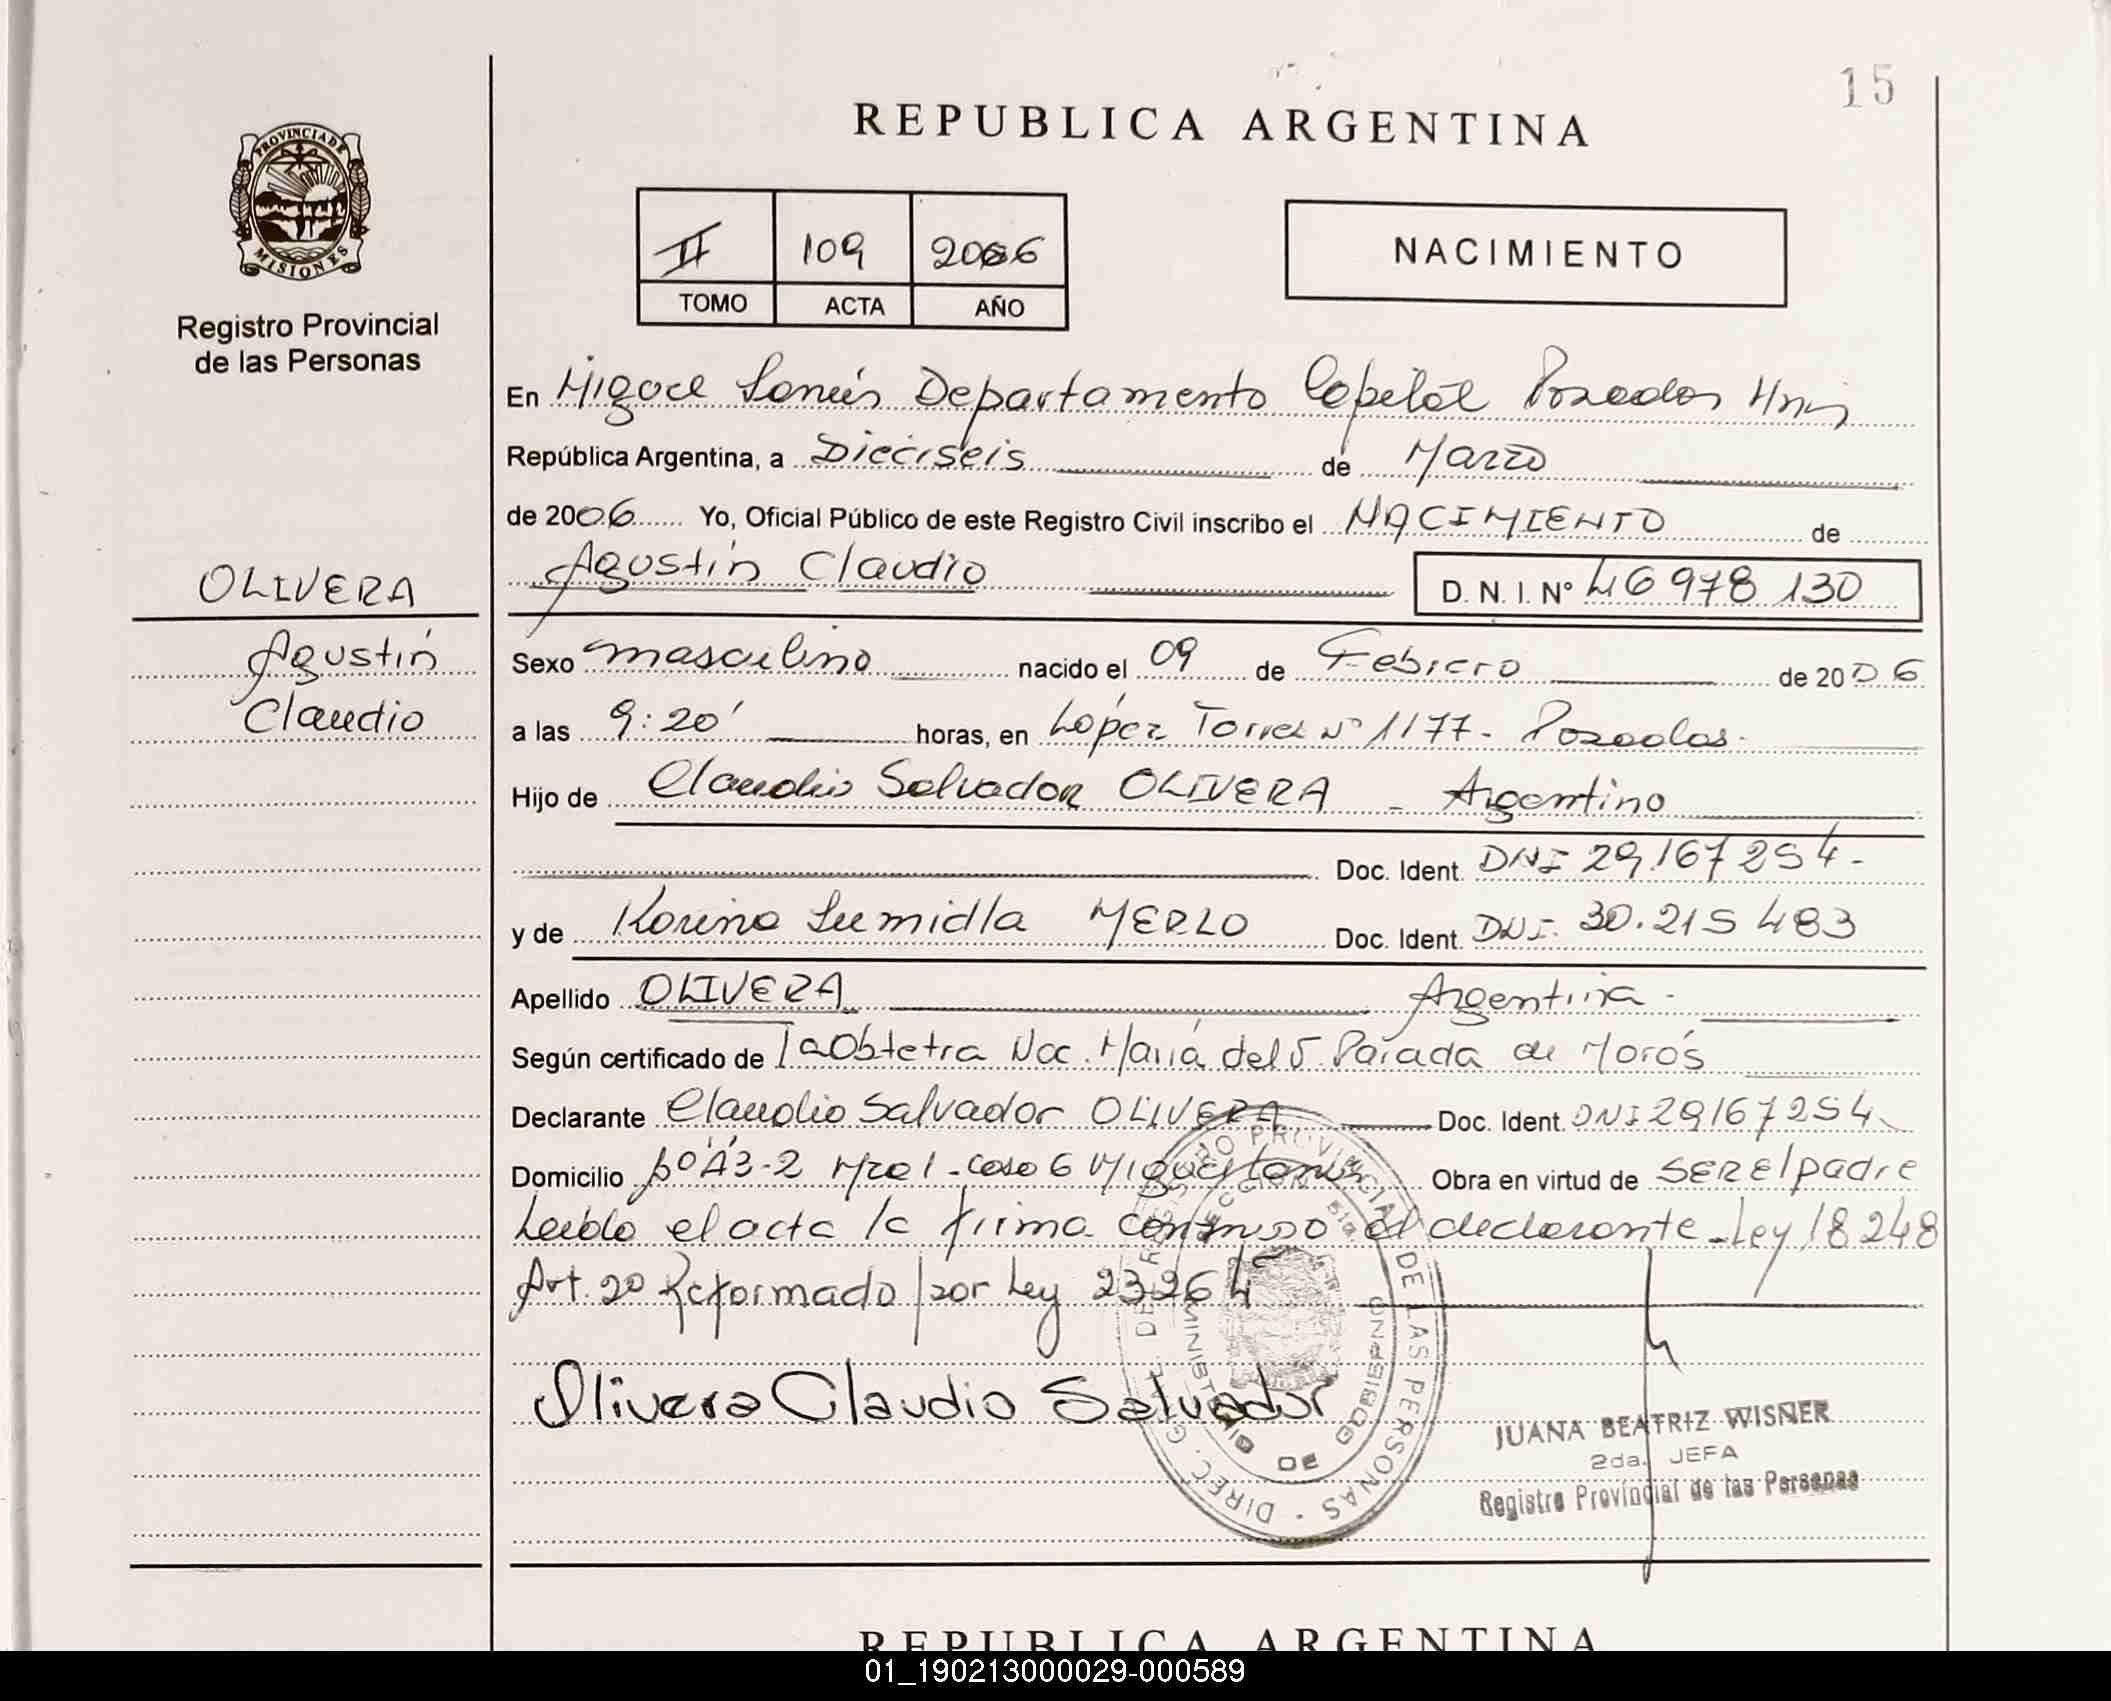 15
REPUBLICA ARGENTINA
PROVINCIA DE
MISIONES
Registro Provincial
de las Personas
II 109 2006
TOMO ACTA AÑO
NACIMIENTO
En Miguel Lanús Departamento Capital Posadas Mnes
República Argentina, a Dieciseis de Marzo
de 2006 Yo, Oficial Público de este Registro Civil inscribo el NACIMIENTO de
Agustín Claudio D. N. I. N° 46 978 130
OLIVERA
Agustín
Claudio
Sexo masculino nacido el 09 de Febrero de 2006
a las 9:20' horas, en López Torres N° 1177 - Posadas -
Hijo de Claudio Salvador OLIVERA - Argentino
Doc. Ident. DNI 29.167 254 -
y de Lumidla MERLO Doc. Ident. DNI. 30.215 483
Apellido OLIVERA Argentina -
Según certificado de la Obstetra Nac. María del Parada de Morós
Declarante Claudio Salvador OLIVERA Doc. Ident. DNI 29167254
Domicilio A3-2 Mza 1 - casa 6 Miguel Lanús Obra en virtud de SER el padre
Leído el acta la firma conmigo el declarante - Ley 18 248
Art. 2º Reformado por Ley 23264
Olivera Claudio Salvador
DIREC. GRAL. DE REGISTRO PROVINCIAL DE LAS PERSONAS
MINISTERIO DE GOBIERNO
JUANA BEATRIZ WISNER
2da. JEFA
Registro Provincial de las Personas
REPUBLICA ARGENTINA
01_190213000029-000589